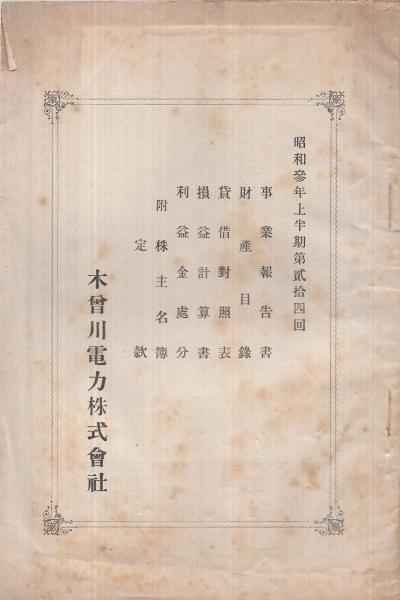 昭和參年上半期第貳拾四回
事業報告書
財產目錄
貸借對照表
損益計算書
利益金處分
附株主名簿
定款
木曾川電力株式會社